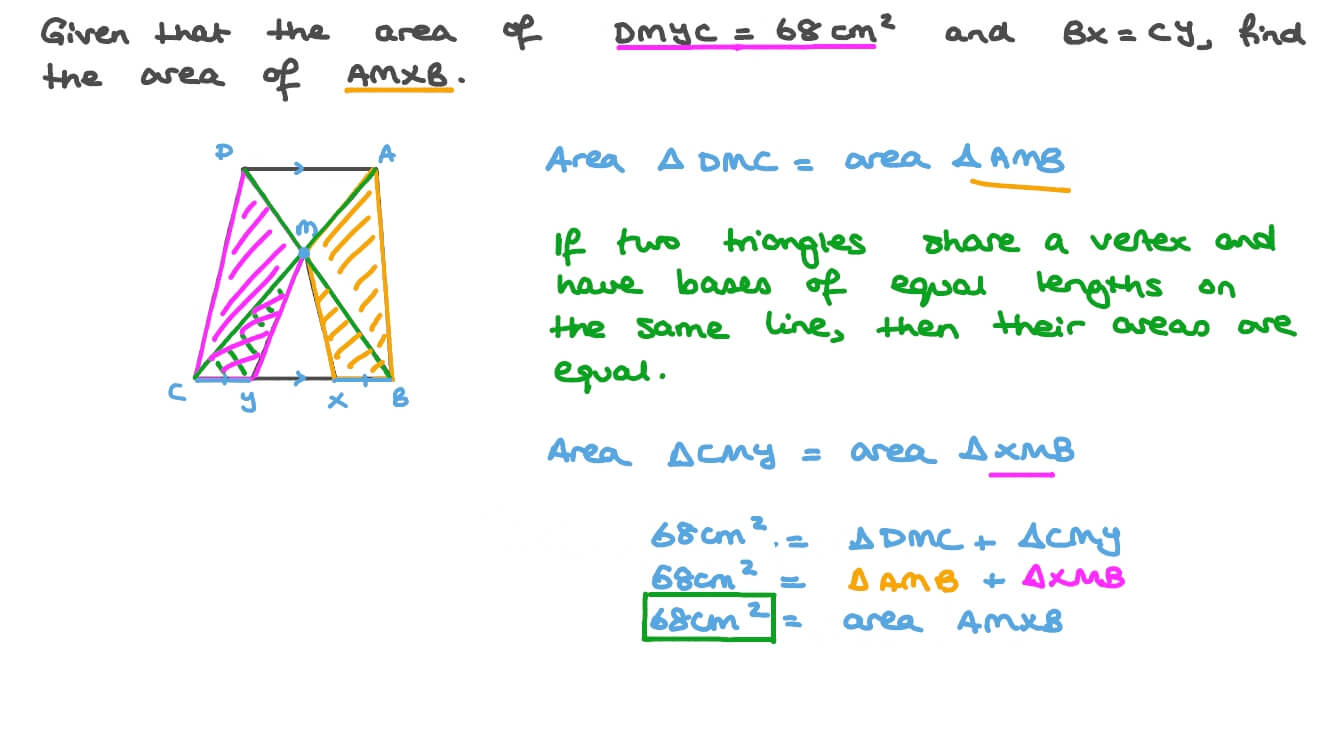 Given that the area of DMYC = 68 cm² and BX = CY, find
the area of AMXB.
D A
M
C Y X B
Area Δ DMC = area Δ AMB
If two triangles share a vertex and
have bases of equal lengths on
the same line, then their areas are
equal.
Area ΔCMY = area ΔXMB
68cm² = ΔDMC + ΔCMY
68cm² = ΔAMB + ΔXMB
68cm² = area AMXB